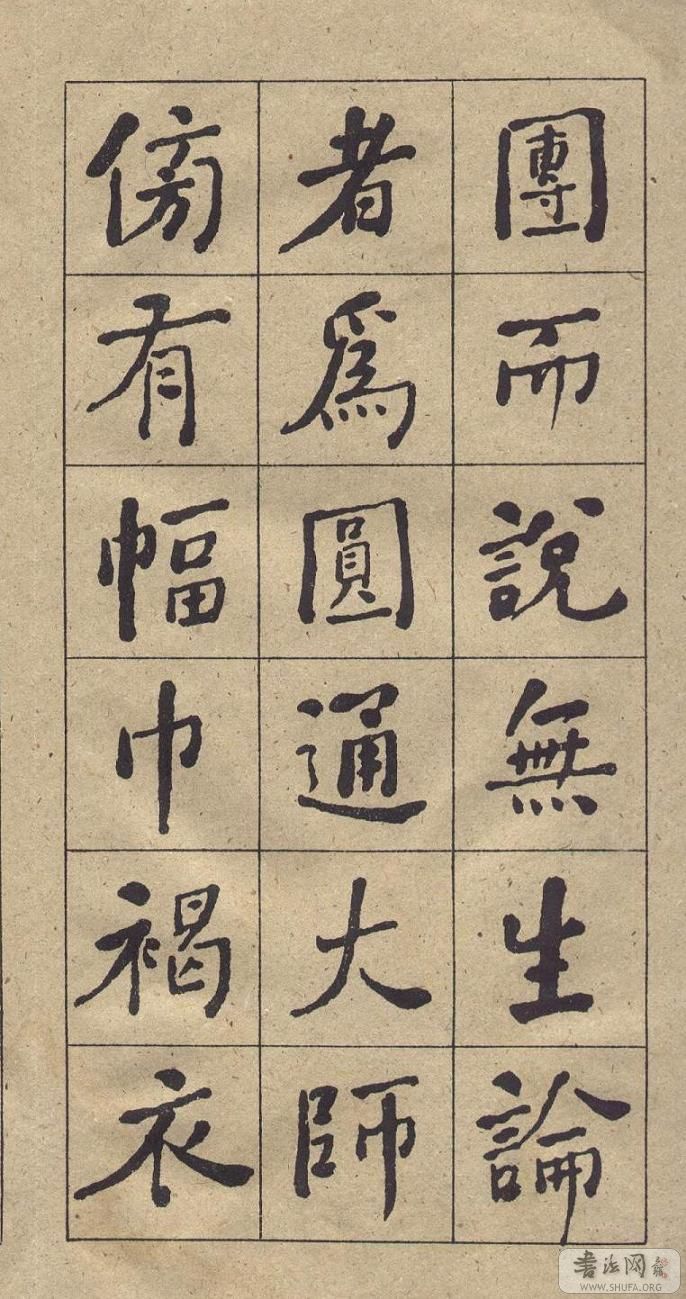 團而說無生論
者爲圓通大師
傍有幅巾褐衣
書法网
WWW.SHUFA.ORG